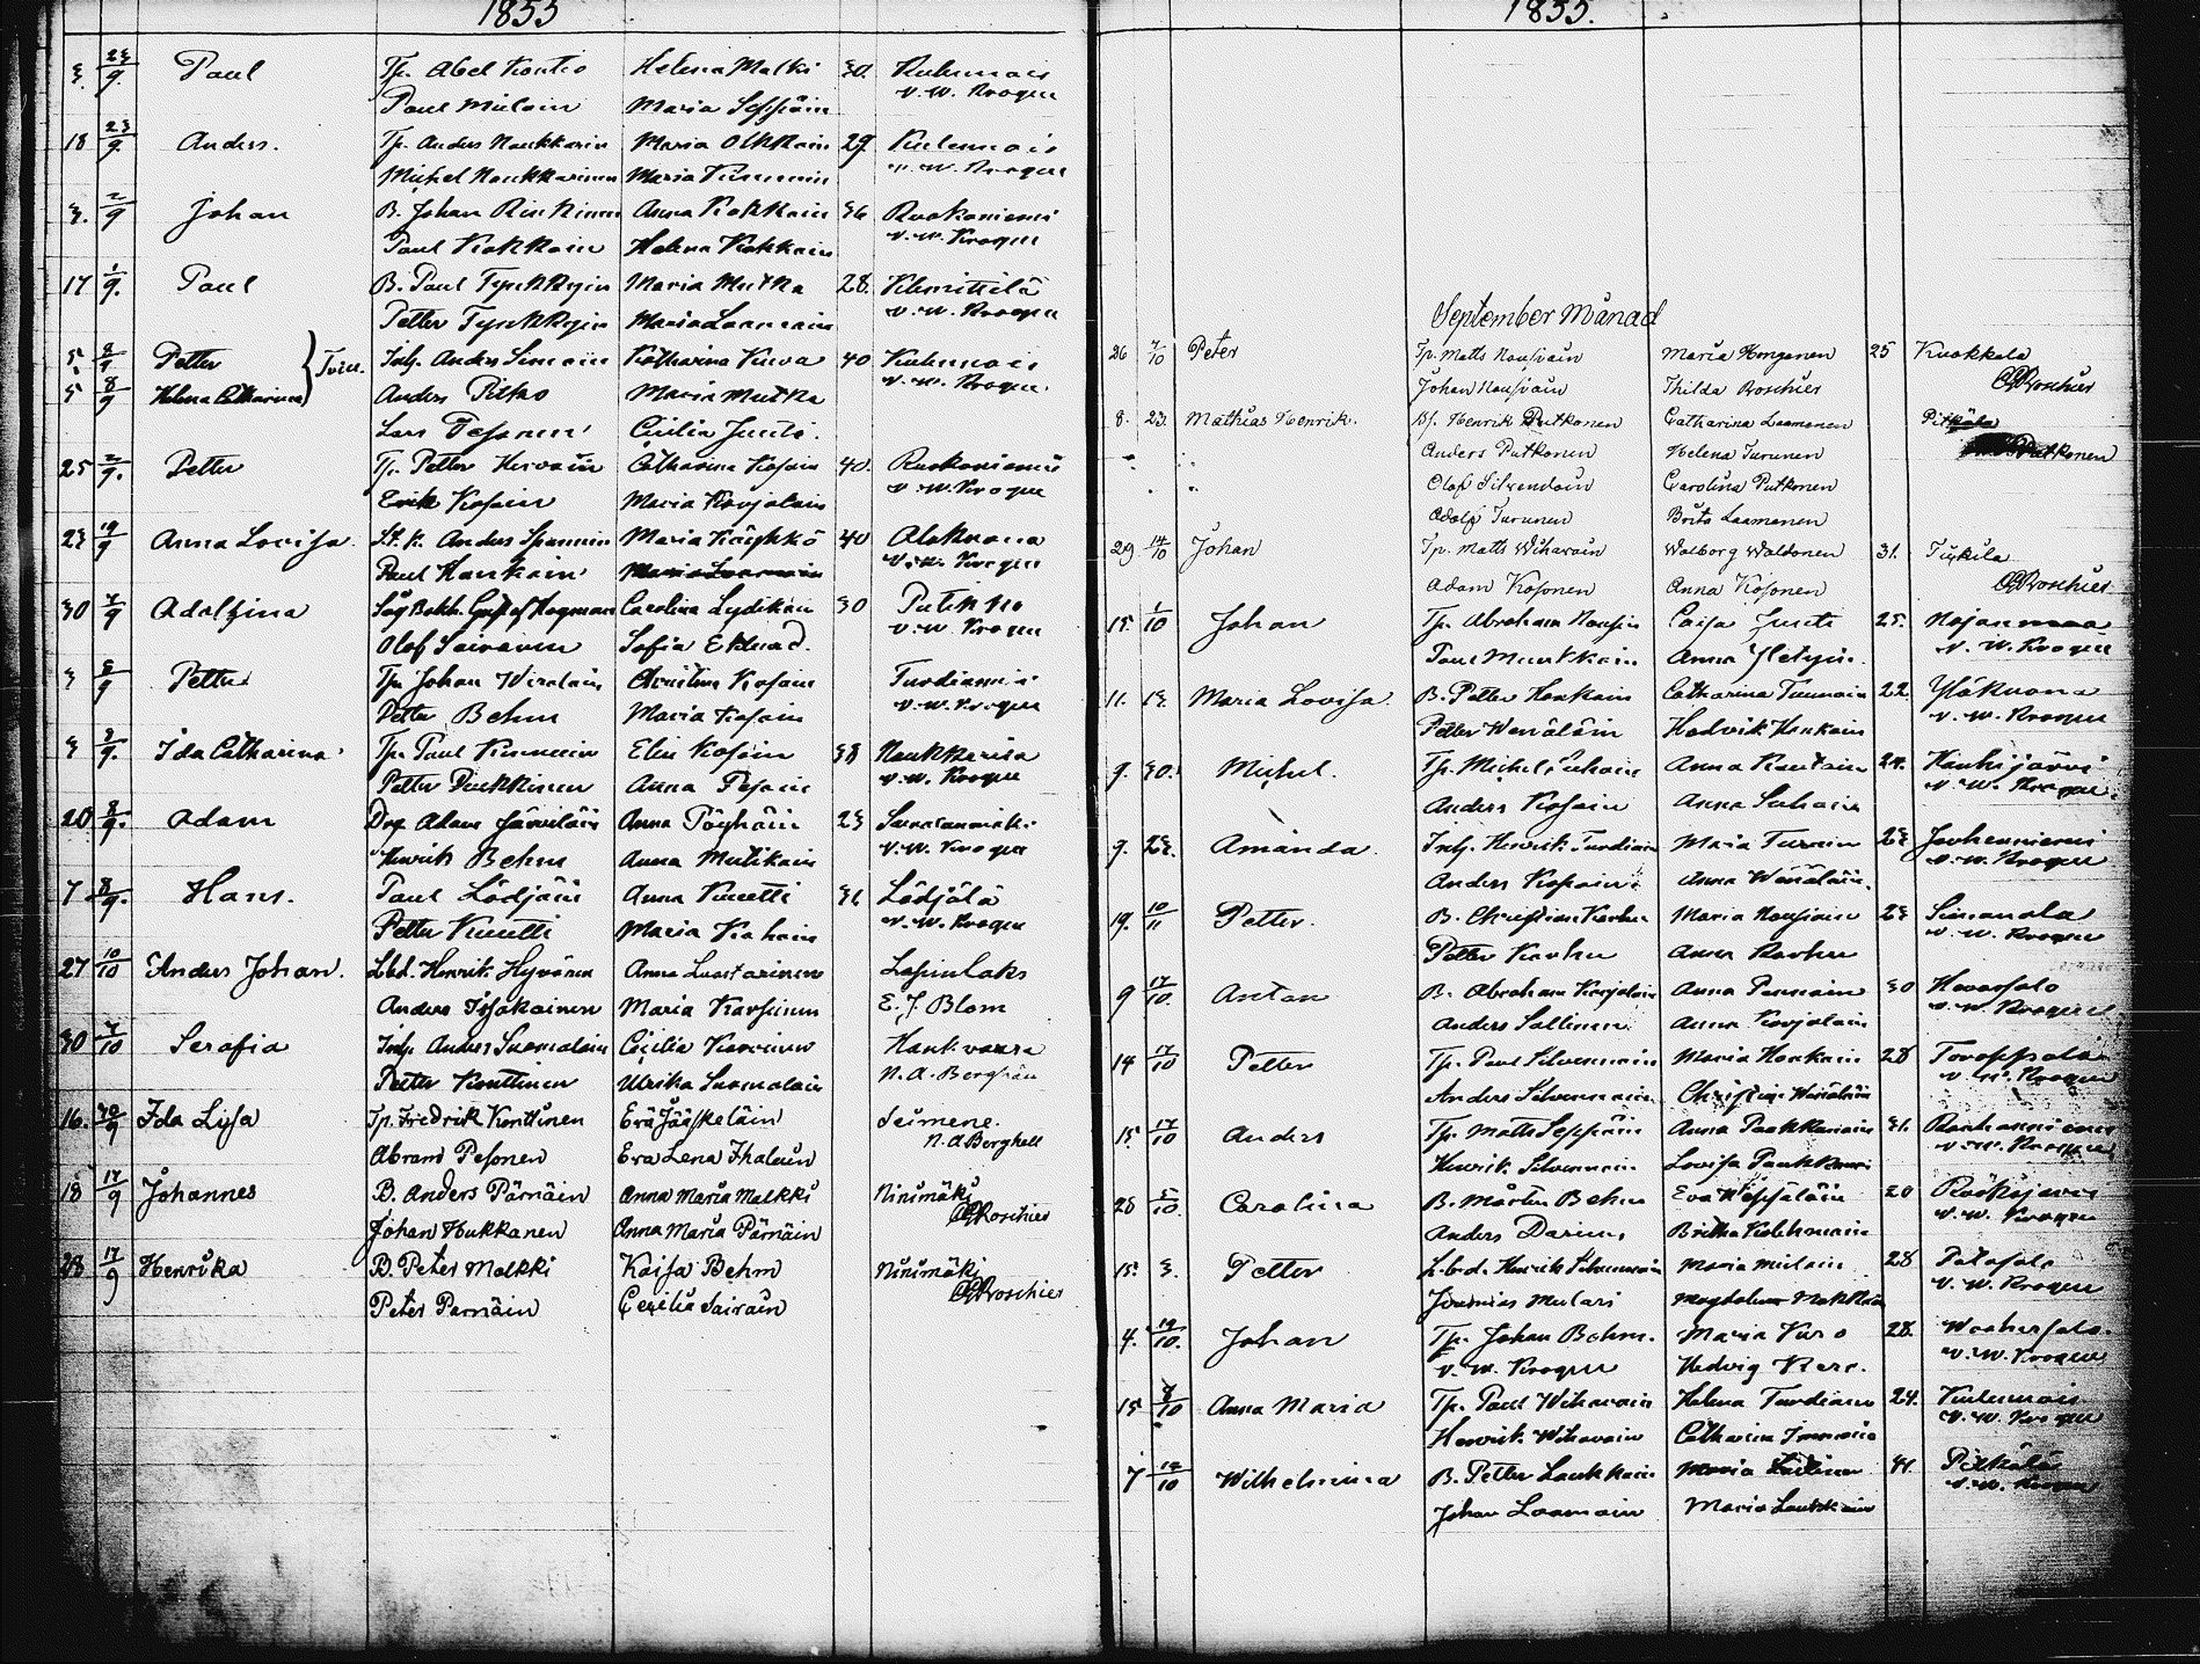 1855
3. 23/9. Paul Tp. Abel Kontio Helena Malki 30. Kulumais
Paul Miilain Maria Seppäin v. W. Krogeu
18 23/9. Anders. Tp. Anders Naukkarin Maria Olkkoin 29 Kulemais
Michel Naukkarinen Maria v. W. Krogeu
3. 2/9 Johan B. Johan Rinkinen Anna Kokkoin 36 Ruokoniemi
Paul Kokkoin Helena Kokkoin v. W. Krogeu
17 1/9. Paul B. Paul Tynkkyin Maria Mutka 28. Vihmittilä
Petter Tynkkyin Maria Laamain v. W. Krogeu
5. 8/9 Petter Tvill. Inh. Anders Simoin Katharina Kurva 40 Kulumais
5 8/9 Helena Catharina Anders Pitko Maria Mutka v. W. Krogeu.
Lars Pesonen Cicilia Junti.
25 2/9. Petter Tp. Petter Hirvoin Catharina Kosoin 40. Ruokoniemi
Erik Kosoin Maria Karjalain v. W. Krogeu
23 19/9 Anna Lovisa. St. K. Anders Maria Käyhkö 40 Alakuona
Paul Haukain v. W. Krogeu
30 7/9 Adolfina Såg Bokh. Gustof Hogman Carolina Lydikäin 30 Putikko
Olof Sairanen Sofia Eklund. v. W. Krogeu
3 5/9 Petter Tp. Johan Wirolain Christina Kosoin Turdianiemi
Petter Behm Maria Kosoin v. W. Krogeu
3 3/9. Ida Catharina Tp. Paul Elin Kosoin 38 Naukkarila
Petter Anna Pesoin v. W. Krogeu
20 8/9. Adam Drg Adam Järviläin Anna Pöyhöin 23
Henrik Behm Anna Mutikain v. W. Krogeu
7 8/9. Hans. Paul Lödjöin Anna 31 Lödjölä
Petter Maria v. W. Krogeu
27 10/10 Anders Johan. Lbd. Henrik Hyvären Anna Luostarinen Lapinlaks
Anders Issakainen Maria Karhunen E. J. Blom
30 7/10 Serafia Inh. Anders Suomalain Cicilia Karvinen Haukvaara
Petter Konttinen Ulrika Suomalain N. A. Berghäll
16. 30/9 Ida Lisa Tp. Fredrik Konttinen Eva Jääskeläin Seimene.
Abram Pesonen Eva Lena Ihalain N. A Berghell
18 17/9 Johannes B. Anders Pärnäin Anna Maria Malkki Niinimäki
Johan Hukkanen Anna Maria Pärnäin Roschier
28 17/9 Henrika B. Peter Malkki Kaisa Behm Niinimäki
Peter Parnäin Cecilia Sairain Roschier
1855.
September Månad
26 7/10 Peter Tp. Matts Nousiain Maria Honganen 25 Kuokkala
Johan Nousiain Thilda Roschier Roschier
8. 23. Mathias Henrik. Bf. Henrik Putkonen Catharina Laamanen Pitkälä
Anders Putkonen Helena Turunen Putkonen
Olof Silvendoin Carolina Putkonen
Adolf Turunen Brita Laamanen
29 14/10 Johan Tp. Matts Wihavain Walborg Waldonen 31. Tiukula
Adam Kosonen Anna Kosonen Roschier
15. 1/10 Johan Tp. Abraham Nousiin Caisa Junti 25. Nojanmaa
Paul Muukkoin Anna v. W. Krogeu
11. 13. Maria Lovisa. B. Petter Haukain Catharina Tuunain 22 Yläkuona
Petter Wenäläin Hedvik Haukain v. W. Krogeu
9. 30. Michel. Tp. Michel Suhoin Anna Kautain 24. Haukijärvi
Anders Kosoin Anna Suhoin v. W. Krogeu.
9. 23. Amanda. Inh. Henrik Turdiain Maria Turuin 23 Jouhenniemi
Anders Anna Wenäläin. v. W. Krogeu
19. 10/11 Petter. B. Christian Karhu Maria Nousiain 23 Simanala
Petter Karhu Anna Karhu v. W. Krogeu
9 17/10. Anton B. Abraham Karjalain Anna Pennain 30 Hevossalo
Anders Sallinen Anna Karjalain v. W. Krogeu
14 17/10 Petter Tp. Paul Silvennoin Maria Haukain 28 Toroppala
Anders Silvennoin Christin Wenäläin v. W. Krogeu
15 17/10 Anders Tp. Matts Seppäin Anna Paakkunain 31. Rauhanniemi
Henrik Silvennoin Lovisa v. W. Krogeu
28 5/10. Carolina B. Mårten Behm Eva 20
Anders Darius Britha Kolehmain v. W. Krogeu
15. 3. Petter L.b.d. Henrik Silvennoin Maria Miilain 28 Patasalo
Jeremias Mulari Magdalena v. W. Krogeu
4. 19/10. Johan Tp. Johan Behm. Maria Kuro 28. Woohersalo.
v. W. Krogeu Hedvig v. W. Krogeu
15 8/10 Anna Maria Tp. Paul Wihavain Helena Turdiain 24. Kulumais
Henrik Wihavain Catharina Immoin v. W. Krogeu
7 14/10 Wilhelmina B. Petter Laukkain Maria 41. Pitkälä
Johan Laamain Maria Laukkain v. W. Krogeu